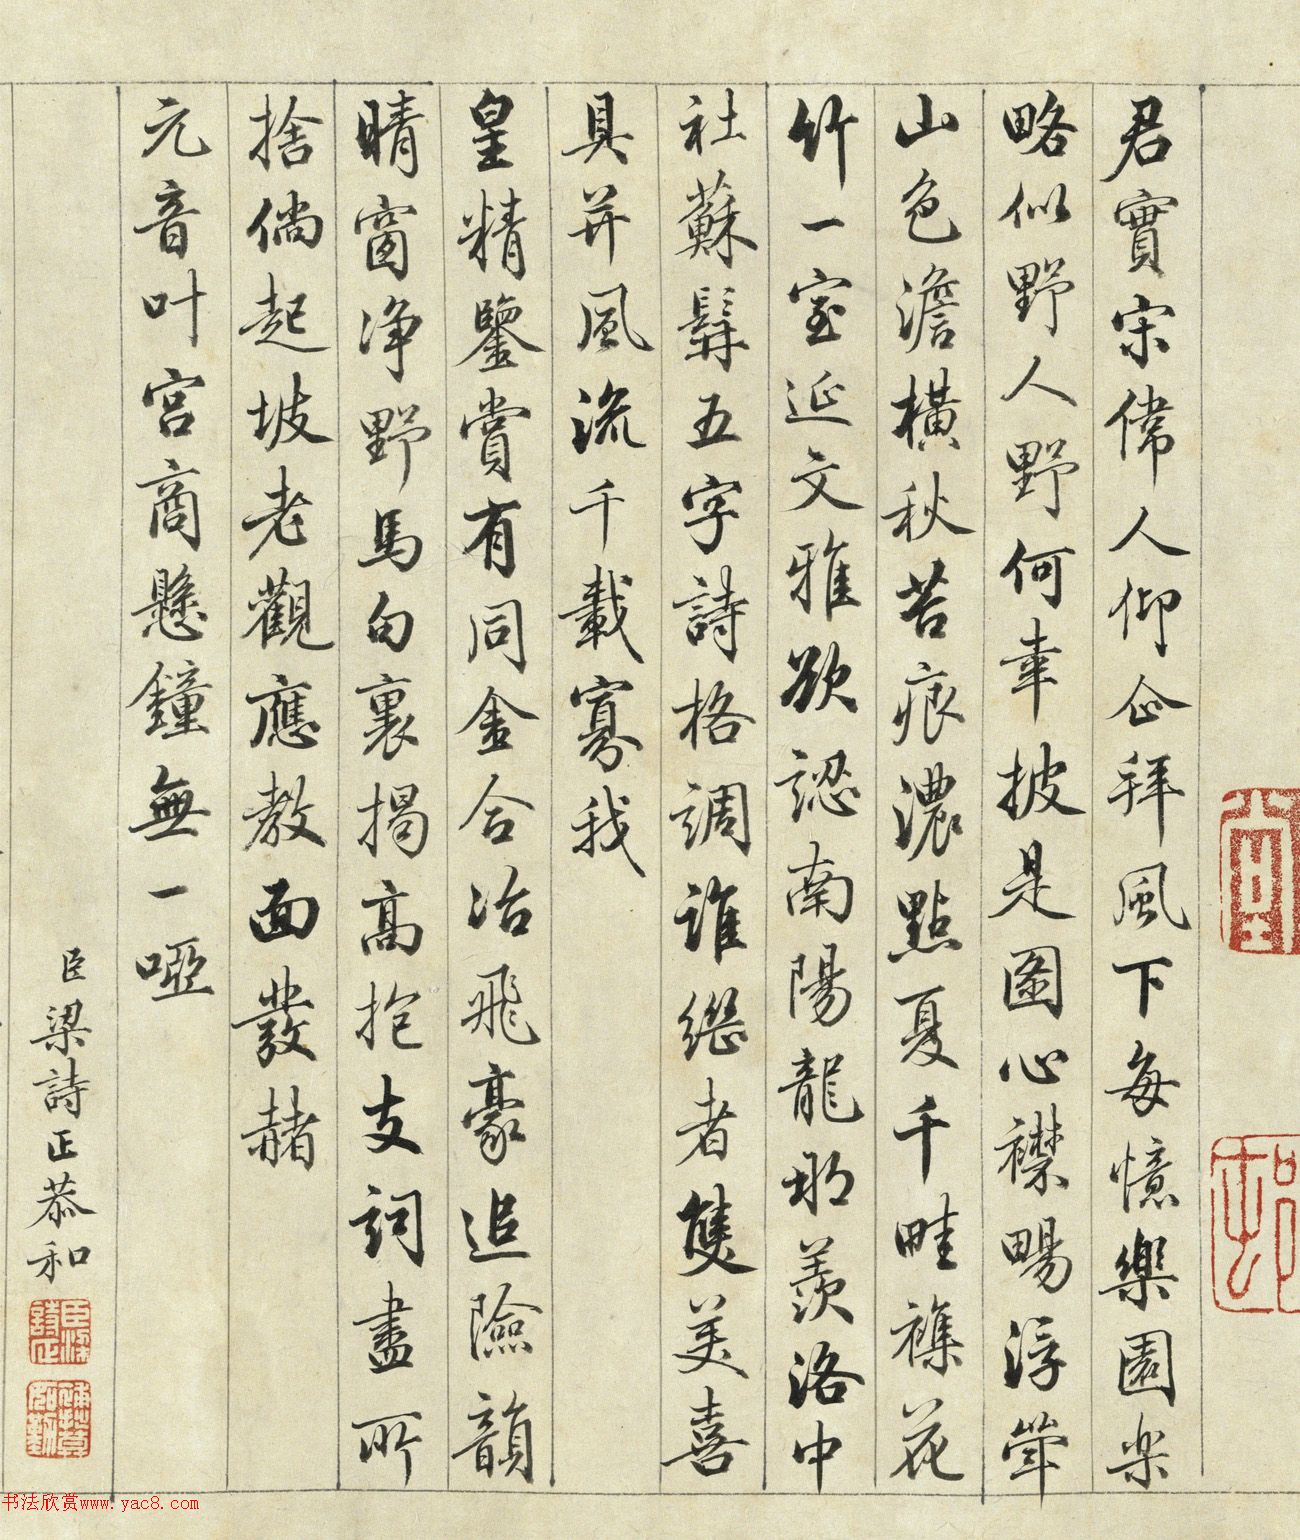 君實宋偉人仰企拜風下每憶樂園樂
略似野人野何幸披是圖心襟暢浮犖
山色澹橫秋苔痕濃點夏千畦襍花
竹一室延文雅欲認南陽龍那羨洛中
社蘇髯五字詩格調誰繼者雙美喜
具并風流千載寡我
皇精鑒賞有同金合冶飛豪追險韻
晴窗净野馬句裏揭高抱支詞盡所
捨倘起坡老觀應教面發赭
元音叶宮商懸鐘無一啞
臣梁詩正恭和
书法欣赏www.yac8.com